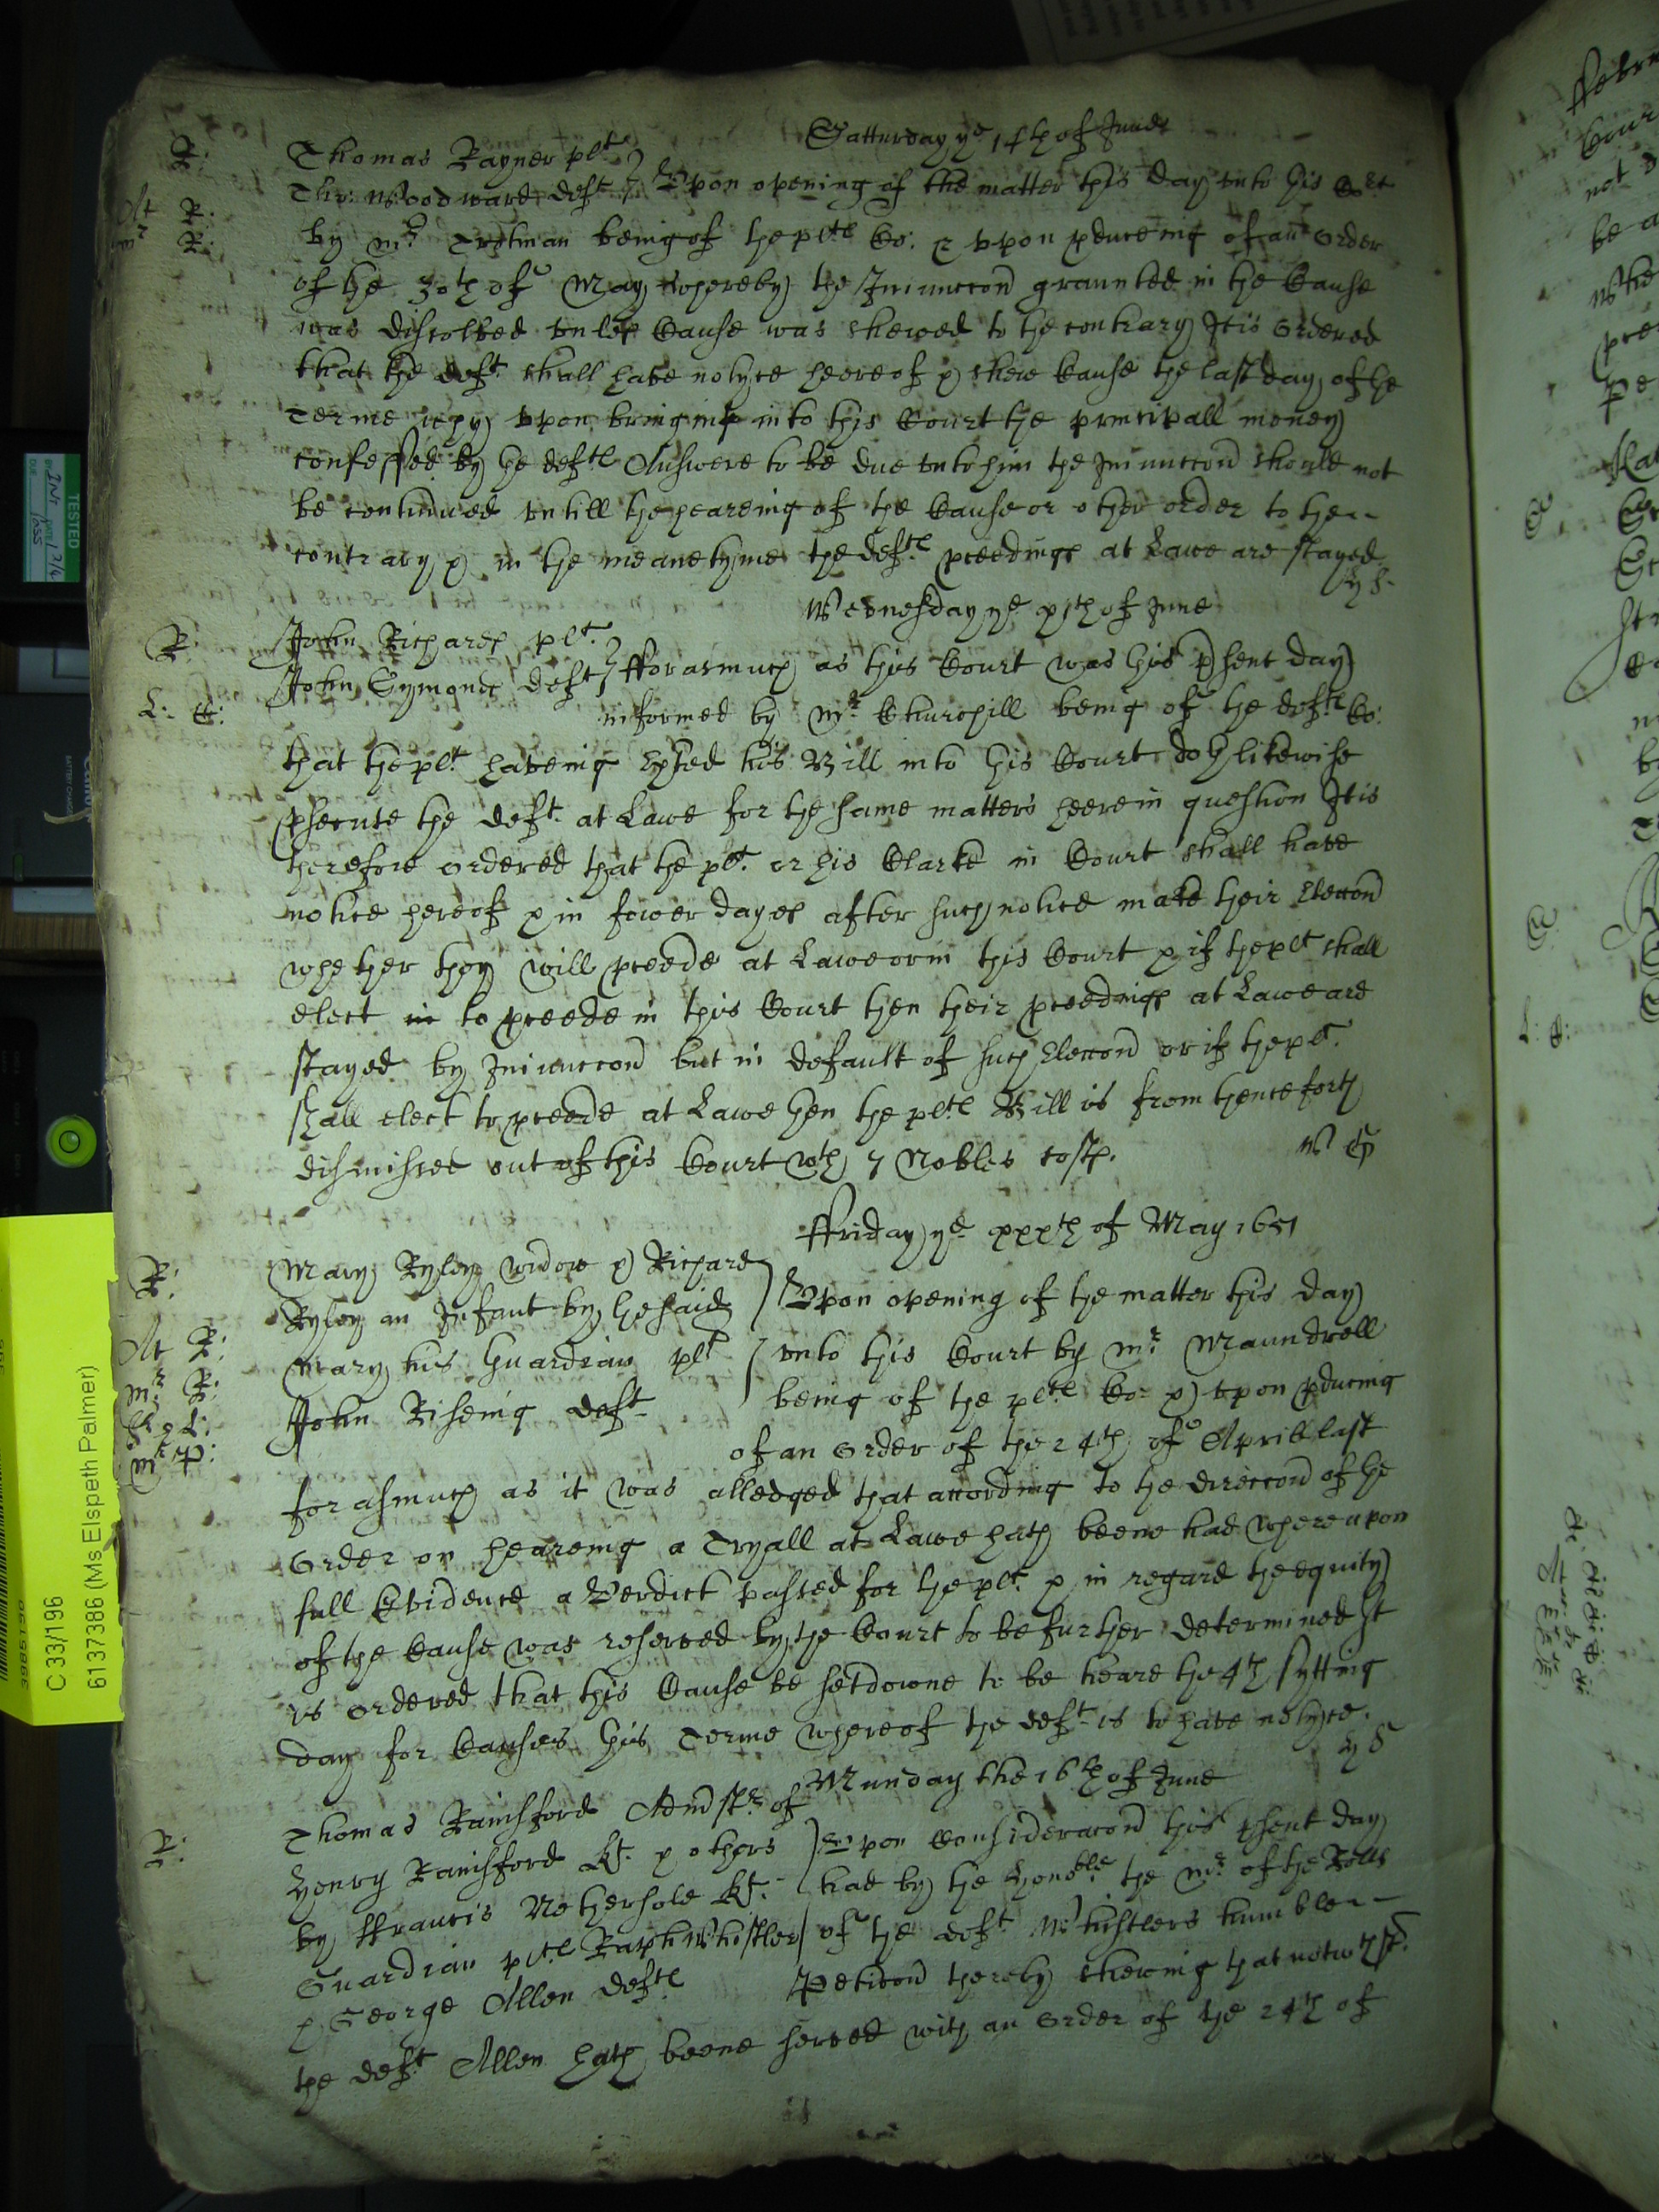 Satturday ye 14th of June
R: Thomas Rayner plt
Tho: Woodward deft } Vpon opening of the matter this day vnto this Cort
At R:
mr R: by Mr Trotman being of the plts Co: & vpon pduceing of an order
of the 30th of May whereby the Iniunccon graunted in the Cause
was dissolved vnles Cause was shewed to the contrary It is ordered
that the deft shall have notyce heereof & shew Cause the last day of the
Terme why vpon bringing into this Court the principall money
confessed by the defts Answere to be due vnto him the Iniunccon should not
be continued vntill the heareing of the Cause or other order to the
contrary & in the meane tyme the defts pceedings at Lawe are stayed
H S
Wednesday ye xjth of June
R: John Richards plt
John Symonds deft } fforasmuch as this Court was this psent day
L: C: informed by Mr Churchill being of the defts Co:
that the plt haveing Exhited his Bill into this Court doth likewise
psecute the deft at Lawe for the same matters heere in question It is
therefore ordered that the plt or his Clarke in Court shall have
notice hereof & in fower dayes after such notice make their Eleccon
whether they will pceede at Lawe or in this Court & if the plt shall
elect in to pceede in this Court then their pceedings at Lawe are
stayed by Iniunccon but in default of such Eleccon or if the plt
shall elect to pceede at Lawe then the plts Bill is from thenceforth
dismissed out of this Court wth 7 Nobles costs.
W G
ffriday ye xxxth of May 1651
R: Mary Ryley widow & Richard
Ryley an Infant by the said } Vpon opening of the matter this day
At R: Mary his Guardian plt vnto this Court by Mr Maundrell
mr R: John Riseing deft being of the plts Co: & vpon pducing
of an Order of the 24th of Aprill last
mr P: for asmuch as it was alledged that according to the direccon of the
Order on heareing a Tryall at Lawe hath beene had whereupon
full Evidence a Verdict passed for the plt & in regard the equity
of the Cause was reserved by the Court to be further determined It
is ordered that this Cause be set downe to be heard the 4th sytting
day for Causes this Terme whereof the deft is to have notyce.
H S
Munday the 16th of June
R: Thomas Rainsford Admstr of
Henry Rainsford Kt & others } vpon Consideracon this psent day
by ffrancis Nethersole Kt had by the Honoble the Mr of the Rolls
Guardian plts Raph Whistler of the deft Whistlers humble
& George Allen defts Peticon thereby shewing that notwthst
the deft Allen hath beene served with an Order of the 24th of
TESTED
C 33/196
6137386 (Ms Elspeth Palmer)